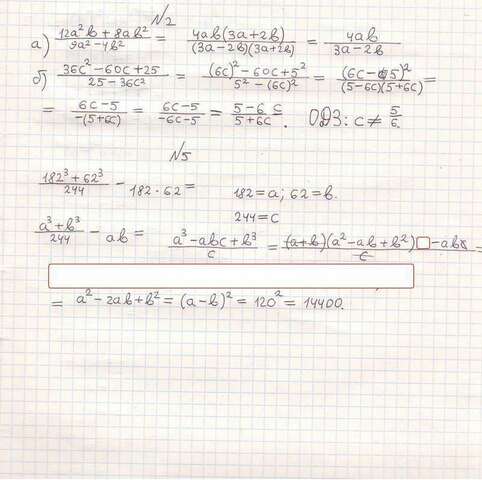 N2
а) (12a²b + 8ab²)/(9a² - 4b²) = 4ab(3a + 2b)/((3a - 2b)(3a + 2b)) = 4ab/(3a - 2b)
б) (36c² - 60c + 25)/(25 - 36c²) = ((6c)² - 60c + 5²)/(5² - (6c)²) = (6c - 5)²/((5 - 6c)(5 + 6c)) =
= (6c - 5)/(-(5 + 6c)) = (6c - 5)/(-6c - 5) = (5 - 6c)/(5 + 6c). ОДЗ: c ≠ 5/6.
N5
(182³ + 62³)/244 - 182 · 62 = 182 = a; 62 = b.
244 = c
(a³ + b³)/244 - ab = (a³ - abc + b³)/c = (a + b)(a² - ab + b²) - ab /c =
= a² - 2ab + b² = (a - b)² = 120² = 14400.